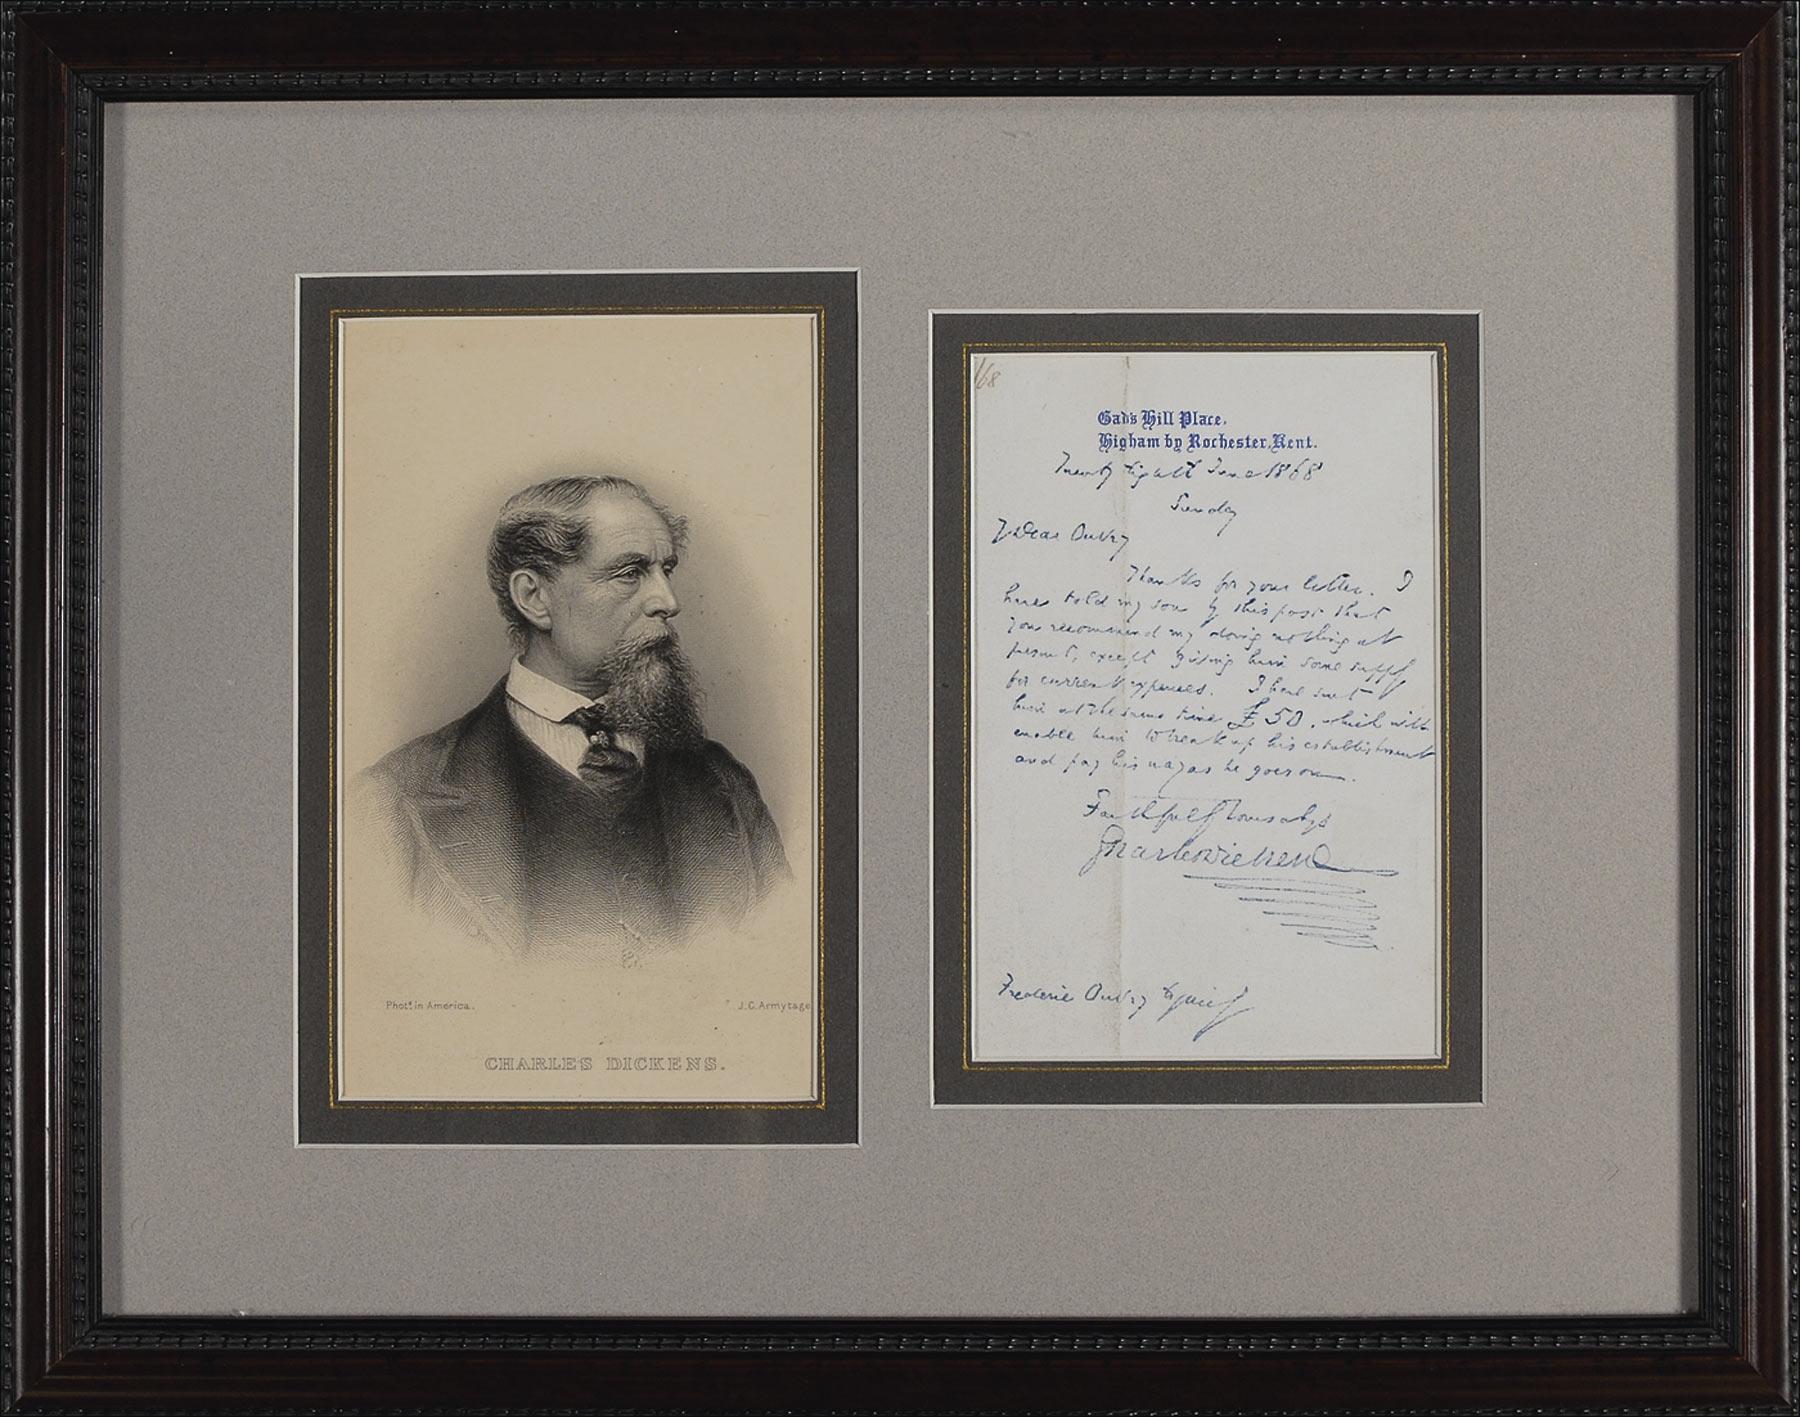 Phot: in America.
J.C. Armytage
CHARLES DICKENS.
/68
Gad's Hill Place,
Higham by Rochester, Kent.
Twenty Eighth June 1868
Sunday
My Dear Ouvry
Thanks for your letter. I
have told my son by this post that
you recommend my doing nothing at
present, except giving him some supply
for current expences. I have sent
him at the same time £50, which will
enable him to break up his establishment
and pay his way as he goes on.
Faithfully Yours always
Charles Dickens
Frederic Ouvry Esquire